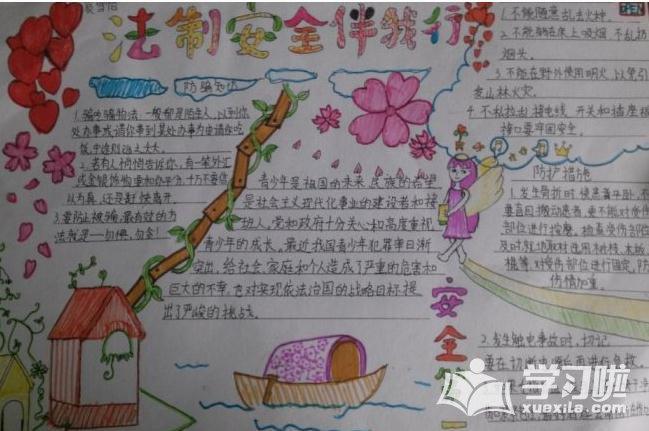 法制安全伴我行
防骗知识
1.骗吃骗物法:一般都是陌生人,以到你
处办事或请你事到某处办事为由请你吃
2.若有人悄悄告诉你,有一笔外汇
或金银饰物要和你平分,千万不要信
以为真,还是赶快离开。
3.要防止被骗,最有效的方
法就是一句俚,勿贪!
青少年是祖国的未来,民族的希望
是社会主义现代化事业的建设者和接
班人,党和政府十分关心和高度重视
青少年的成长。最近我国青少年犯罪率日渐
突出,给社会、家庭和个人造成了严重的危害和
巨大的不幸,也对实现依法治国的战略目标提
出了严峻的挑战。
1.不能随意乱丢火种。
2.不能躺在床上吸烟,不乱扔
烟头。
3.不能在野外使用明火,以免引
发山林火灾。
4.不私拉乱接电线,开关和插座接
接口要牢固安全。
防护措施
1.发生骨折时,使患者平卧,不
要盲目搬动患者,更不能对受伤
部位进行按摩,检查受伤部位
及时就地取材选用树枝、木板、
安全
2.发生触电事故时,切记
要在切断电源后再进行急救。
学习啦
xuexila.com